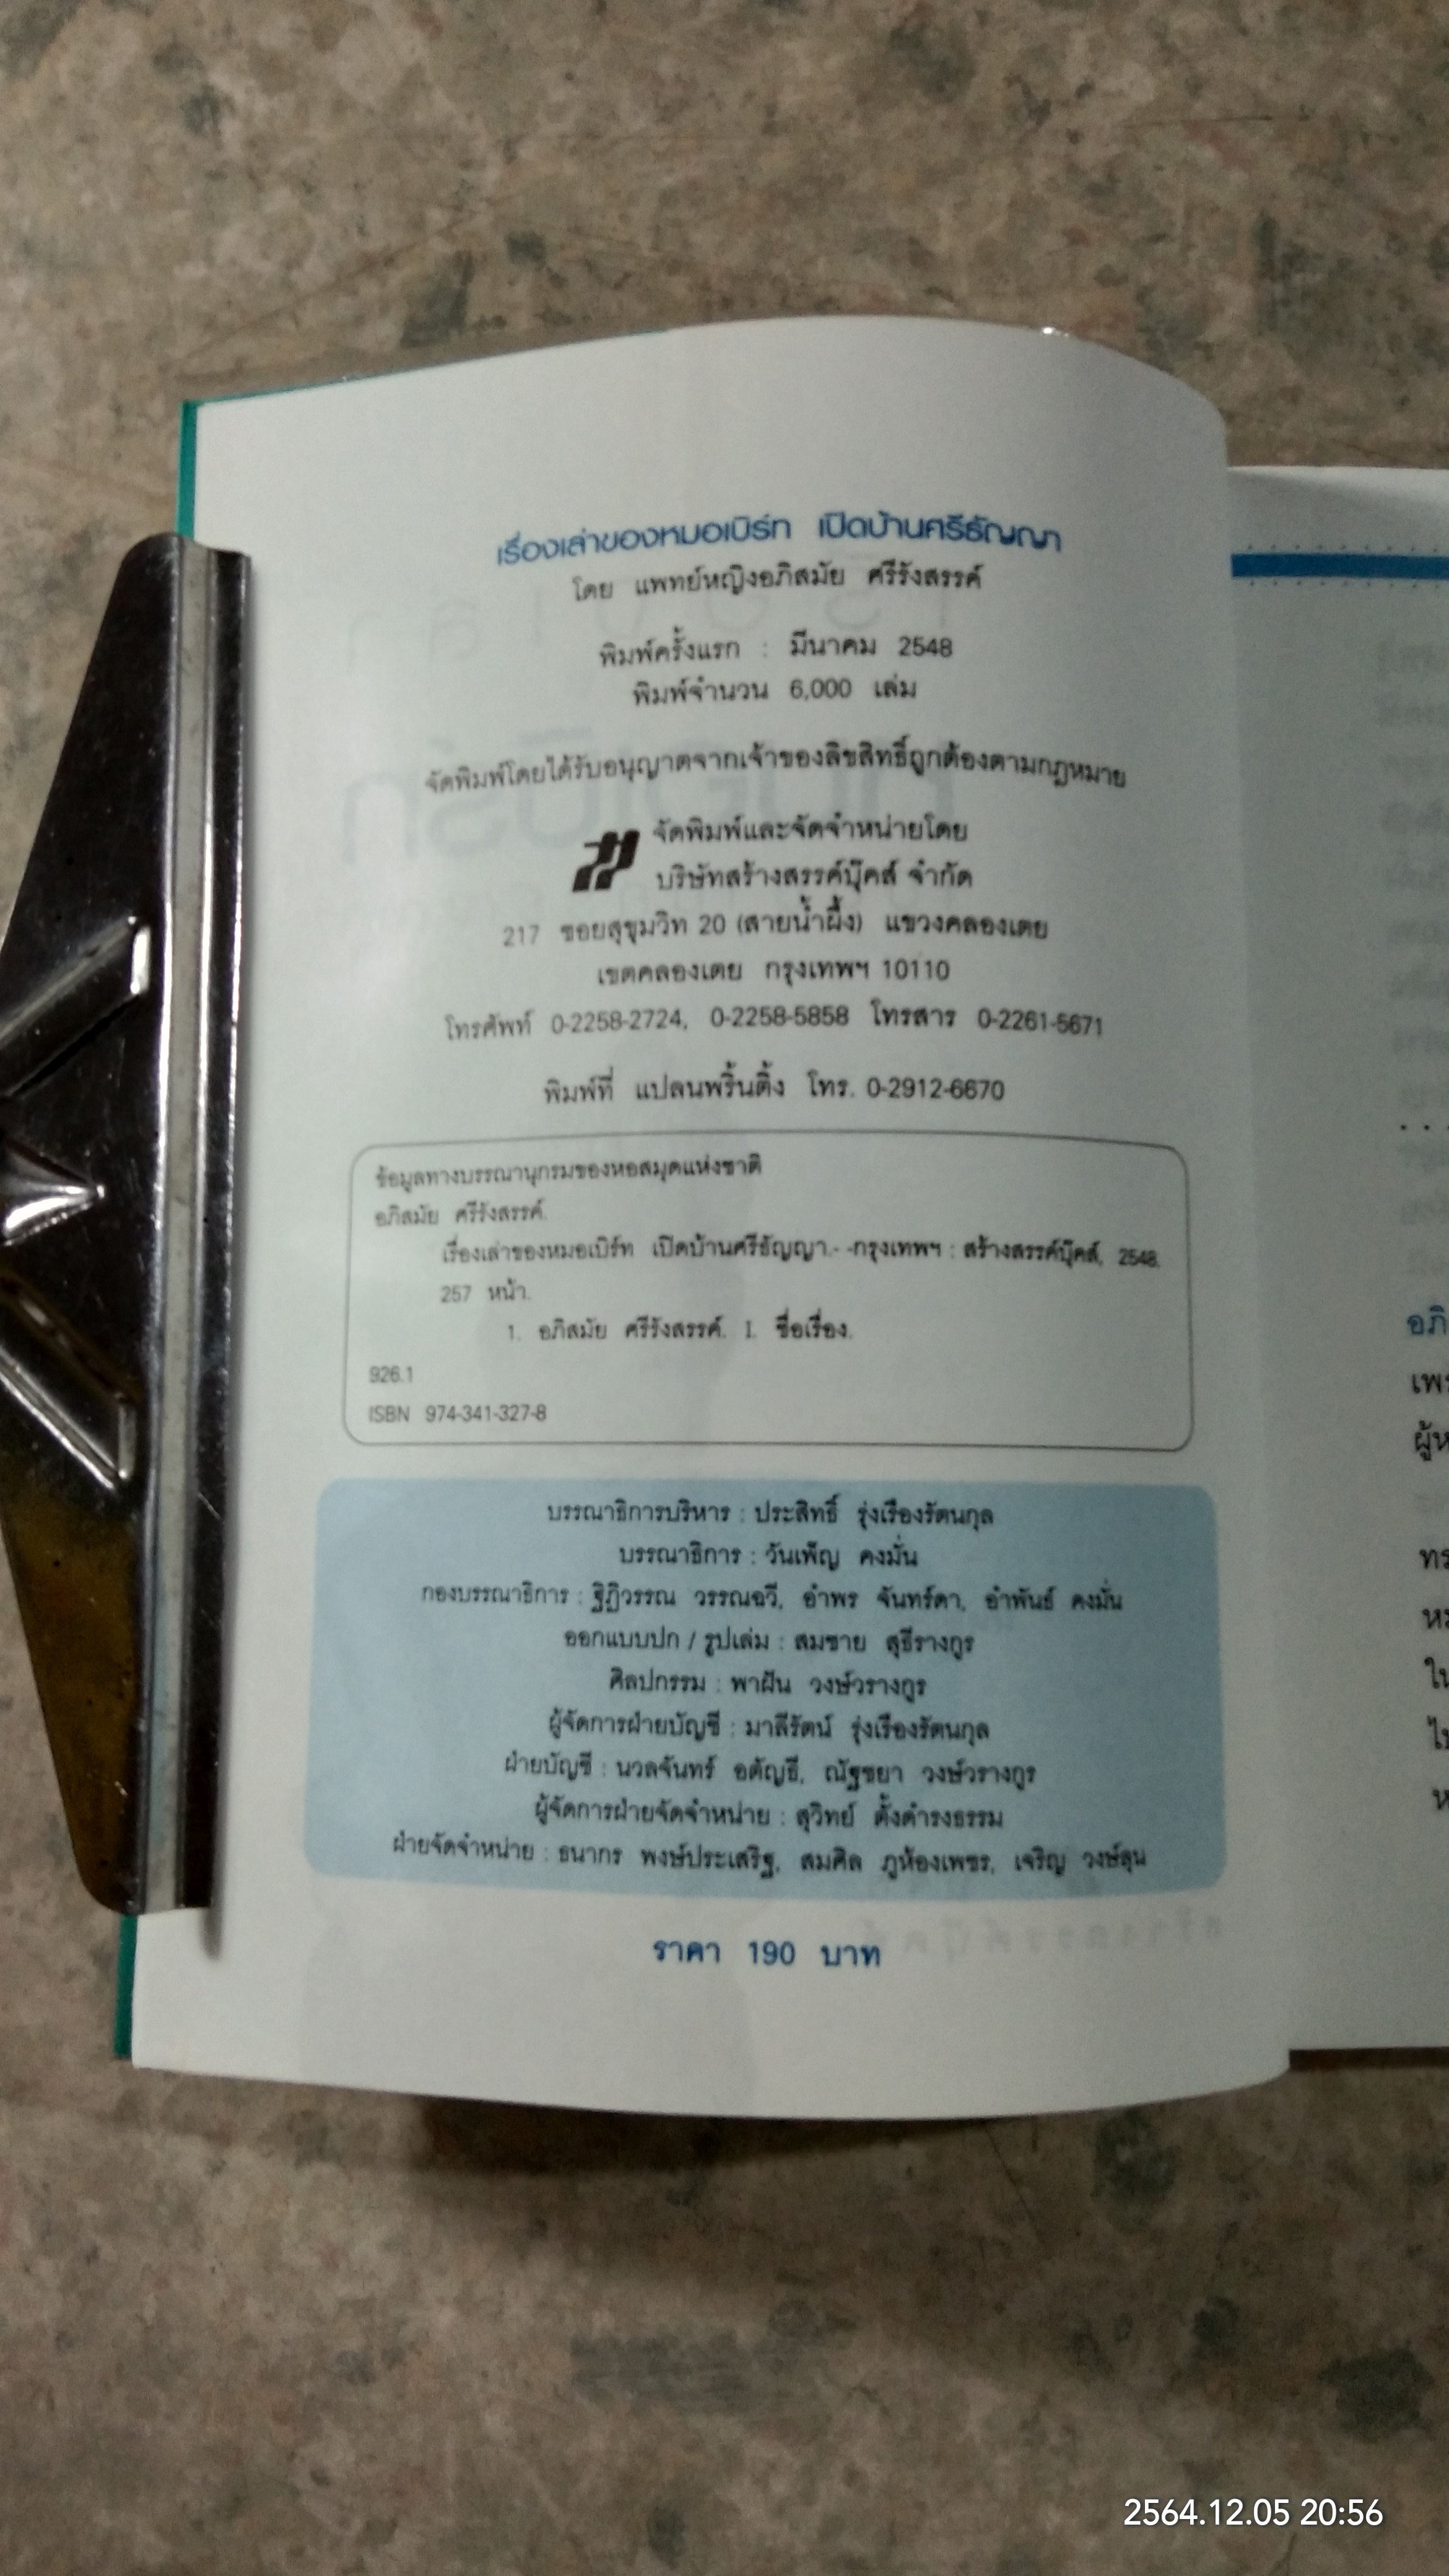 เรื่องเล่าของหมอเบิร์ท เปิดบ้านศรีธัญญา
โดย แพทย์หญิงอภิสมัย ศรีรังสรรค์
พิมพ์ครั้งแรก : มีนาคม 2548
พิมพ์จำนวน 6,000 เล่ม
จัดพิมพ์โดยได้รับอนุญาตจากเจ้าของลิขสิทธิ์ถูกต้องตามกฎหมาย
จัดพิมพ์และจัดจำหน่ายโดย
บริษัทสร้างสรรค์บุ๊คส์ จำกัด
217 ซอยสุขุมวิท 20 (สายน้ำผึ้ง) แขวงคลองเตย
เขตคลองเตย กรุงเทพฯ 10110
โทรศัพท์ 0-2258-2724, 0-2258-5858 โทรสาร 0-2261-5671
พิมพ์ที่ แปลนพริ้นติ้ง โทร. 0-2912-6670
ข้อมูลทางบรรณานุกรมของหอสมุดแห่งชาติ
อภิสมัย ศรีรังสรรค์.
เรื่องเล่าของหมอเบิร์ท เปิดบ้านศรีธัญญา.- -กรุงเทพฯ : สร้างสรรค์บุ๊คส์, 2548.
257 หน้า.
1. อภิสมัย ศรีรังสรรค์. I. ชื่อเรื่อง.
926.1
ISBN 974-341-327-8
บรรณาธิการบริหาร : ประสิทธิ์ รุ่งเรืองรัตนกุล
บรรณาธิการ : วันเพ็ญ คงมั่น
กองบรรณาธิการ : ฐิฏิวรรณ วรรณฉวี, อำพร จันทร์ดา, อำพันธ์ คงมั่น
ออกแบบปก / รูปเล่ม : สมชาย สุธีรางกูร
ศิลปกรรม : พาฝัน วงษ์วรางกูร
ผู้จัดการฝ่ายบัญชี : มาลีรัตน์ รุ่งเรืองรัตนกุล
ฝ่ายบัญชี : นวลจันทร์ อตัญธี, ณัฐชยา วงษ์วรางกูร
ผู้จัดการฝ่ายจัดจำหน่าย : สุวิทย์ ตั้งดำรงธรรม
ฝ่ายจัดจำหน่าย : ธนากร พงษ์ประเสริฐ, สมศิล ภูห้องเพชร, เจริญ วงษ์ลุน
ราคา 190 บาท
อภิ
เพ
ผู้ห
2564.12.05 20:56